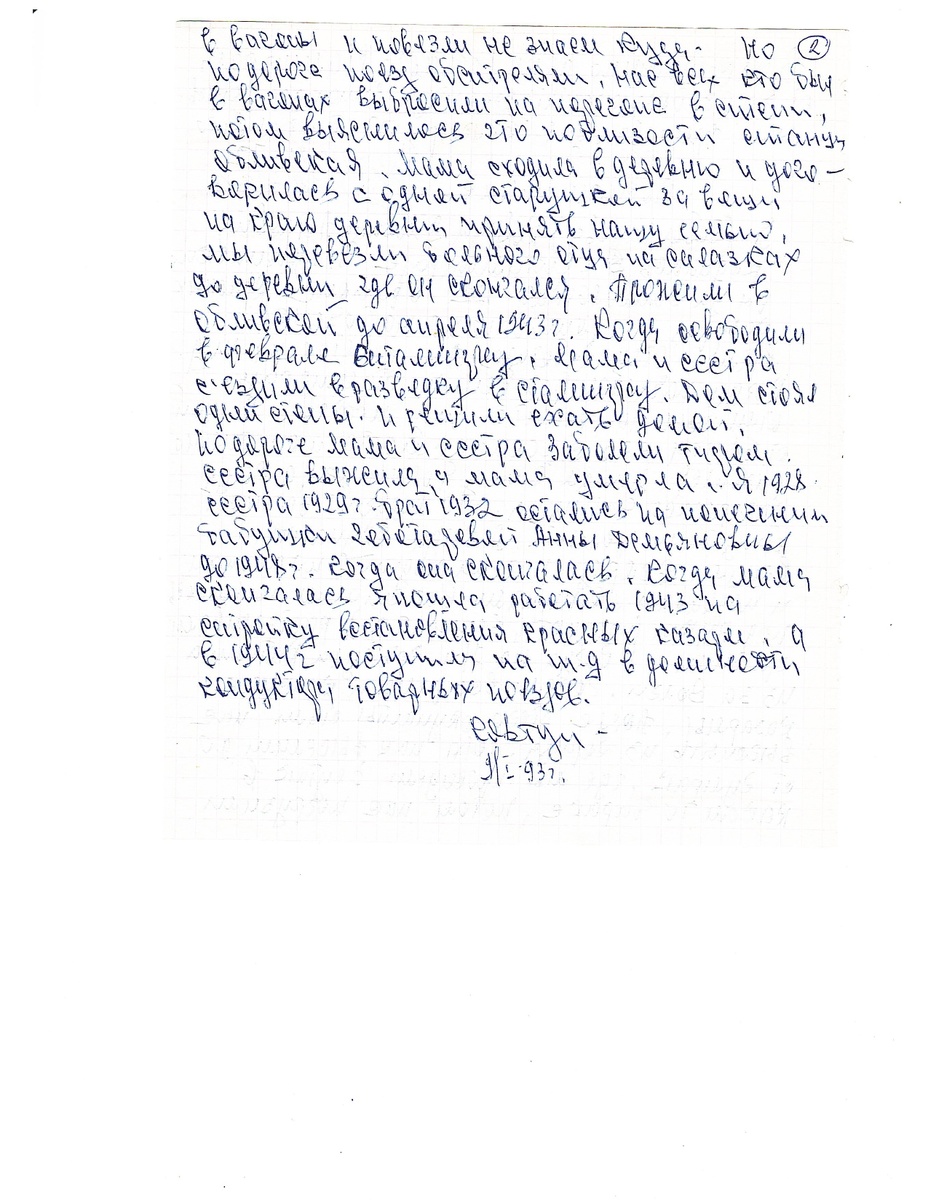 в вагоны и повезли не знаем куда. Но ②
по дороге поезд обстреляли, нас всех кто был
в вагонах выбросили на перегоне в степи,
потом выяснилось это поблизости станиц
Обливская. Мама сходила в деревню и дого-
варилась с одной старушкой за вещи
на краю деревни принять нашу семью,
мы перевезли больного отца на салазках
до деревни где он скончался. Прожили в
Обливской до апреля 1943 г. Когда освободили
в феврале Сталинград, мама и сестра
съездили в разведку в Сталинград. Дом стоял
одни стены. И решили ехать домой,
по дороге мама и сестра заболели тифом.
сестра выжила, а мама умерла. Я 1928
сестра 1929 г. брат 1932 остались на попечении
бабушки Анны Демьяновны
до 1948 г. когда она скончалась. Когда мама
скончалась я пошла работать 1943 на
стройку востановления красных казарм, а
в 1944 г поступила на ж.д в должности
кондуктора товарных поездов.
9/I-93 г.